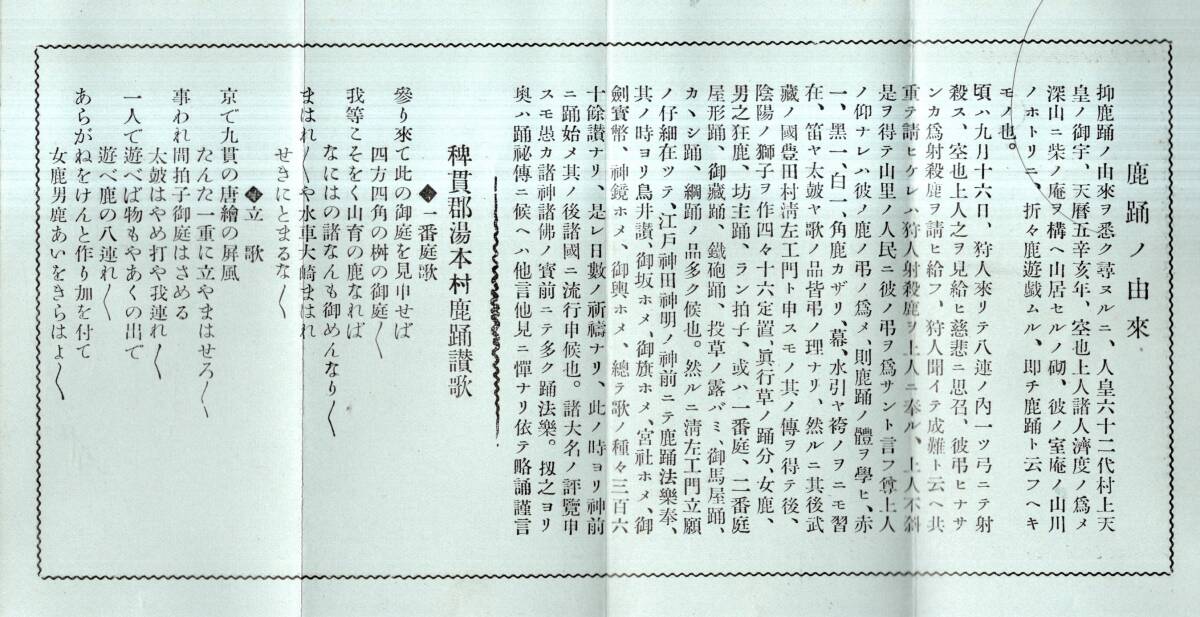 鹿踊ノ由來
抑鹿踊ノ由來ヲ悉ク尋ヌルニ、人皇六十二代村上天
皇ノ御宇、天曆五辛亥年、空也上人諸人濟度ノ爲メ
深山ニ柴ノ庵ヲ構ヘ山居セルノ砌、彼ノ室庵ノ山川
ノホトリニ、折々鹿遊戯ムル、即チ鹿踊ト云フヘキ
モノ也。
頃ハ九月十六日、狩人來リテ八連ノ內一ツ弓ニテ射
殺ス、空也上人之ヲ見給ヒ慈悲ニ思召、彼弔ヒナサ
ンカ爲射殺鹿ヲ請ヒ給フ、狩人聞イテ成難ト云ヘ共
重テ請ヒケレハ狩人射殺鹿ヲ上人ニ奉ル、上人不斜
是ヲ得テ山里ノ人民ニ彼ノ弔ヲ爲サント言フ尊上人
ノ仰ナレハ彼ノ鹿ノ弔ノ爲メ、則鹿踊ノ體ヲ學ヒ、赤
一、黑一、白一、角鹿カザリ、幕、水引ヤ袴ノヲニモ習
在、笛ヤ太鼓ヤ歌ノ品皆弔ノ理ナリ、然ルニ其後武
藏ノ國豊田村淸左工門ト申スモノ其ノ傳ヲ得テ後、
陰陽ノ獅子ヲ作四々十六定置、眞行草ノ踊分、女鹿、
男之狂鹿、坊主踊、ラン拍子、或ハ一番庭、二番庭
屋形踊、御藏踊、鐵砲踊、投草ノ露バミ、御馬屋踊、
カヽシ踊、綱踊ノ品多ク候也。然ルニ淸左工門立願
ノ仔細在ツテ、江戸神田神明ノ神前ニテ鹿踊法樂奉、
其ノ時ヨリ鳥井讃、御坂ホメ、御旗ホメ、宮社ホメ、御
劍寶幣、神鏡ホメ、御輿ホメ、總テ歌ノ種々三百六
十餘讃ナリ、是レ日數ノ祈禱ナリ、此ノ時ヨリ神前
ニ踊始メ其ノ後諸國ニ流行申候也。諸大名ノ評覽申
スモ愚カ諸神諸佛ノ寶前ニテ多ク踊法樂。扨之ヨリ
奥ハ踊祕傳ニ候ヘハ他言他見ニ憚ナリ依テ略誦謹言
稗貫郡湯本村鹿踊讃歌
◆一番庭歌
參り來て此の御庭を見申せば
四方四角の桝の御庭〱
我等こそをく山育の鹿なれば
なにはの諸なんも御めんなり〱
まはれ〱や水車大崎まはれ
せきにとまるな〱
◆立歌
京で九貫の唐繪の屏風
たんた一重に立やまはせろ〱
事われ間拍子御庭はさめる
太鼓はやめ打や我連れ〱
一人で遊べば物もやあくの出で
遊べ鹿の八連れ〱
あらがねをけんと作り加を付て
女鹿男鹿あいをきらはよ〱